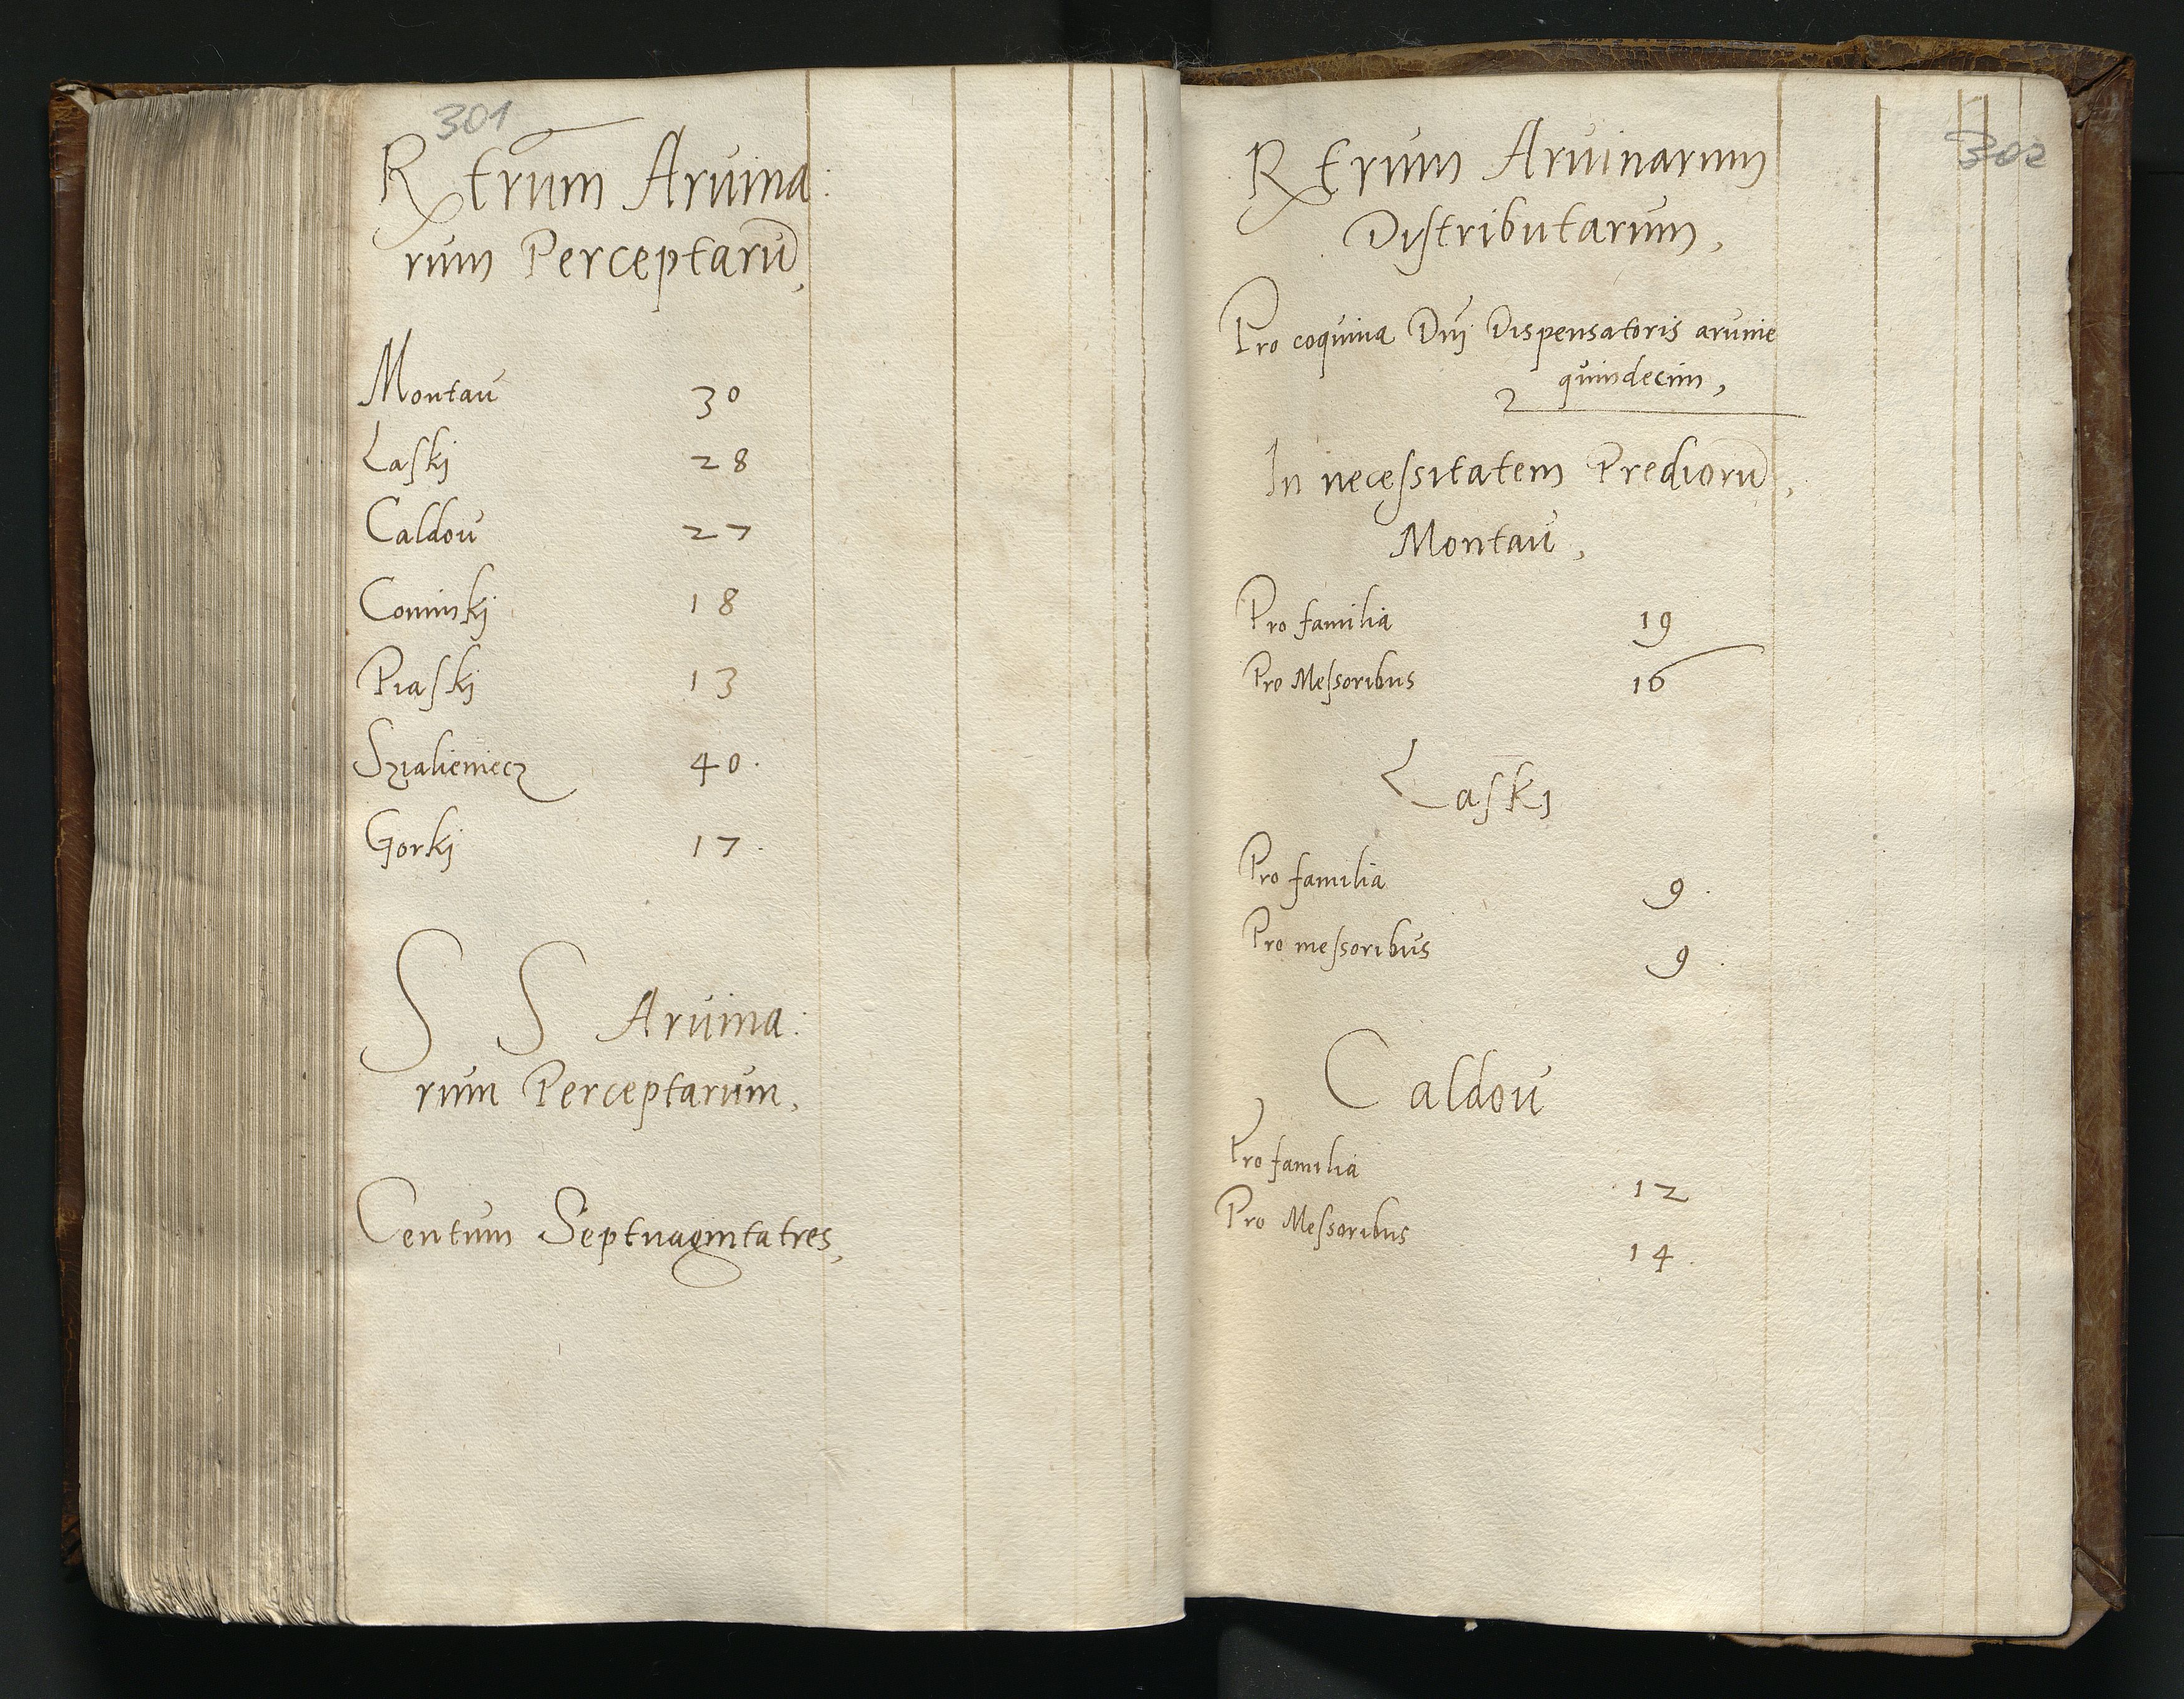 301
Rtrum Aruina:
rum Perceptarũ,
Montau 30
Laskj 28
Caldou 27
Cominskj 18
Piaskj 13
Szialieniecz 40.
Gorkj 17.
S S Aruina:
rum Perceptarum,
Centum Septuagintatres,
302
Rtrum Aruinarum
Distributarum,
Pro coquina Dnj Dispensatoris aruine
quindecim,
In necessitatem Prediorũ,
Montau,
Pro familia 19
Pro Messoribus 16
Laski
Pro familia 9.
Pro messoribus 9.
Caldou
Pro familia 12
Pro Messoribus 14.